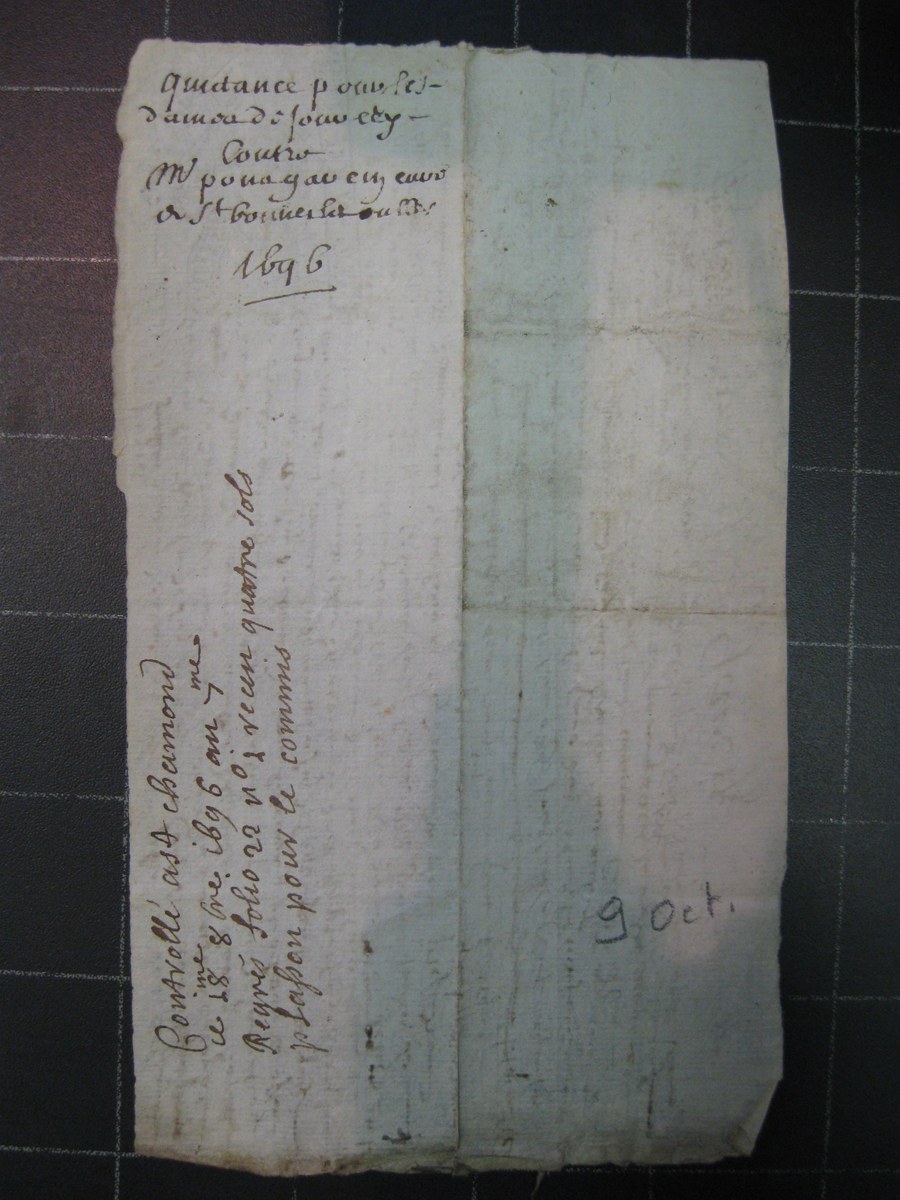 quictance pour les
dames de jourcey
Contre
Mr ponagau en cure
de St bonnet les oulles
1696
Controllé a St chamond
le 18me 8bre 1696 au 7me
Regrés folio 22 no 1 receu quatre sols
plasson pour le commis
9 Oct.